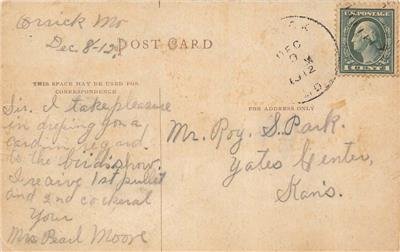 Orrick Mo
Dec. 8-12.
POST CARD
THIS SPACE MAY BE USED FOR
CORRESPONDENCE
FOR ADDRESS ONLY
Sir. I take pleasure
in droping you a
card in regard
to the birds show.
I receive 1st pullet
and 2nd cockeral
Your
Mrs Pearl Moore
Mr. Roy. S. Park.
Yates Center,
Kans.
DEC
9
M
1912
MO.
U.S. POSTAGE
1 CENT 1